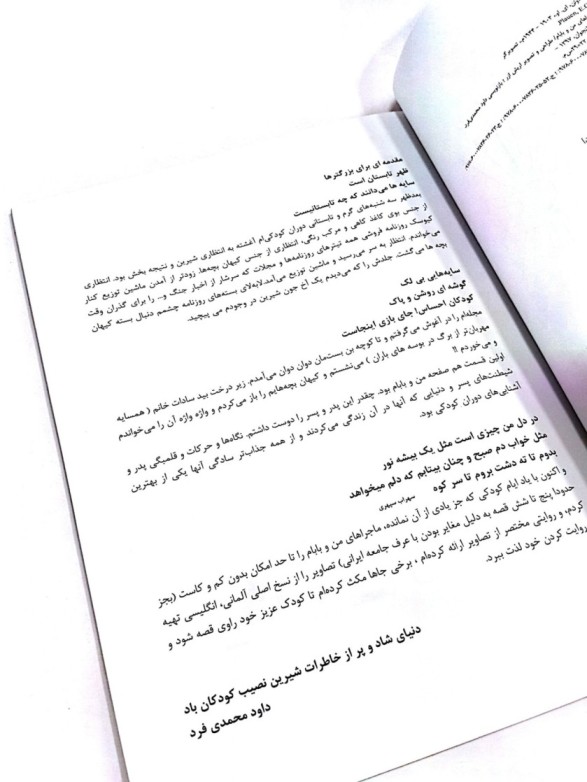 مقدمه ای برای بزرگترها
ظهر تابستان است
سایه ها می‌دانند که چه تابستانیست
بعدظهر سه شنبه‌های گرم و تابستانی دوران کودکی‌ام آغشته به انتظاری شیرین و نتیجه بخش بود. انتظاری
از جنس بوی کاغذ کاهی و مرکب رنگی، انتظاری از جنس کیهان بچه‌ها. زودتر از آمدن ماشین توزیع کنار
کیوسک روزنامه فروشی همه تیترهای روزنامه‌ها و مجلات که سرشار از اخبار جنگ و... را برای گذران وقت
می‌خواندم. انتظار به سر می‌رسید و ماشین توزیع می‌آمد. لابه‌لای بسته‌های روزنامه چشمم دنبال بسته کیهان
بچه ها می‌گشت. جلدش را که می‌دیدم یک آخ جون شیرین در وجودم می پیچید.
سایه‌هایی بی لک
گوشه ای روشن و پاک
کودکان احساس! جای بازی اینجاست
مجله‌ام را در آغوش می‌گرفتم و تا کوچه بن بست‌مان دوان دوان می‌آمدم. زیر درخت بید سادات خانم ( همسایه
مهربان‌تر از برگ در بوسه های باران ) می‌نشستم و کیهان بچه‌هایم را باز می‌کردم و واژه واژه آن را می‌خواندم
و می‌خوردم !!
اولین قسمت هم صفحه من و بابام بود. چقدر این پدر و پسر را دوست داشتم. نگاه‌ها و حرکات و قلمبگی پدر و
شیطنت‌های پسر و دنیایی که آنها در آن زندگی می‌کردند و از همه جذاب‌تر سادگی آنها یکی از بهترین
آشنایی‌های دوران کودکی بود.
در دل من چیزی است مثل یک بیشه نور
مثل خواب دم صبح و چنان بیتابم که دلم میخواهد
بدوم تا ته دشت بروم تا سر کوه    سهراب سپهری
و اکنون با یاد ایام کودکی که جز یادی از آن نمانده، ماجراهای من و بابام را تا حد امکان بدون کم و کاست (بجز
حدودا پنج تا شش قصه به دلیل مغایر بودن با عرف جامعه ایرانی) تصاویر را از نسخ اصلی آلمانی، انگلیسی تهیه
کردم، و روایتی مختصر از تصاویر ارائه کرده‌ام ، برخی جاها مکث کرده‌ام تا کودک عزیز خود راوی قصه شود و
روایت کردن خود لذت ببرد.
دنیای شاد و پر از خاطرات شیرین نصیب کودکان باد
داود محمدی فرد